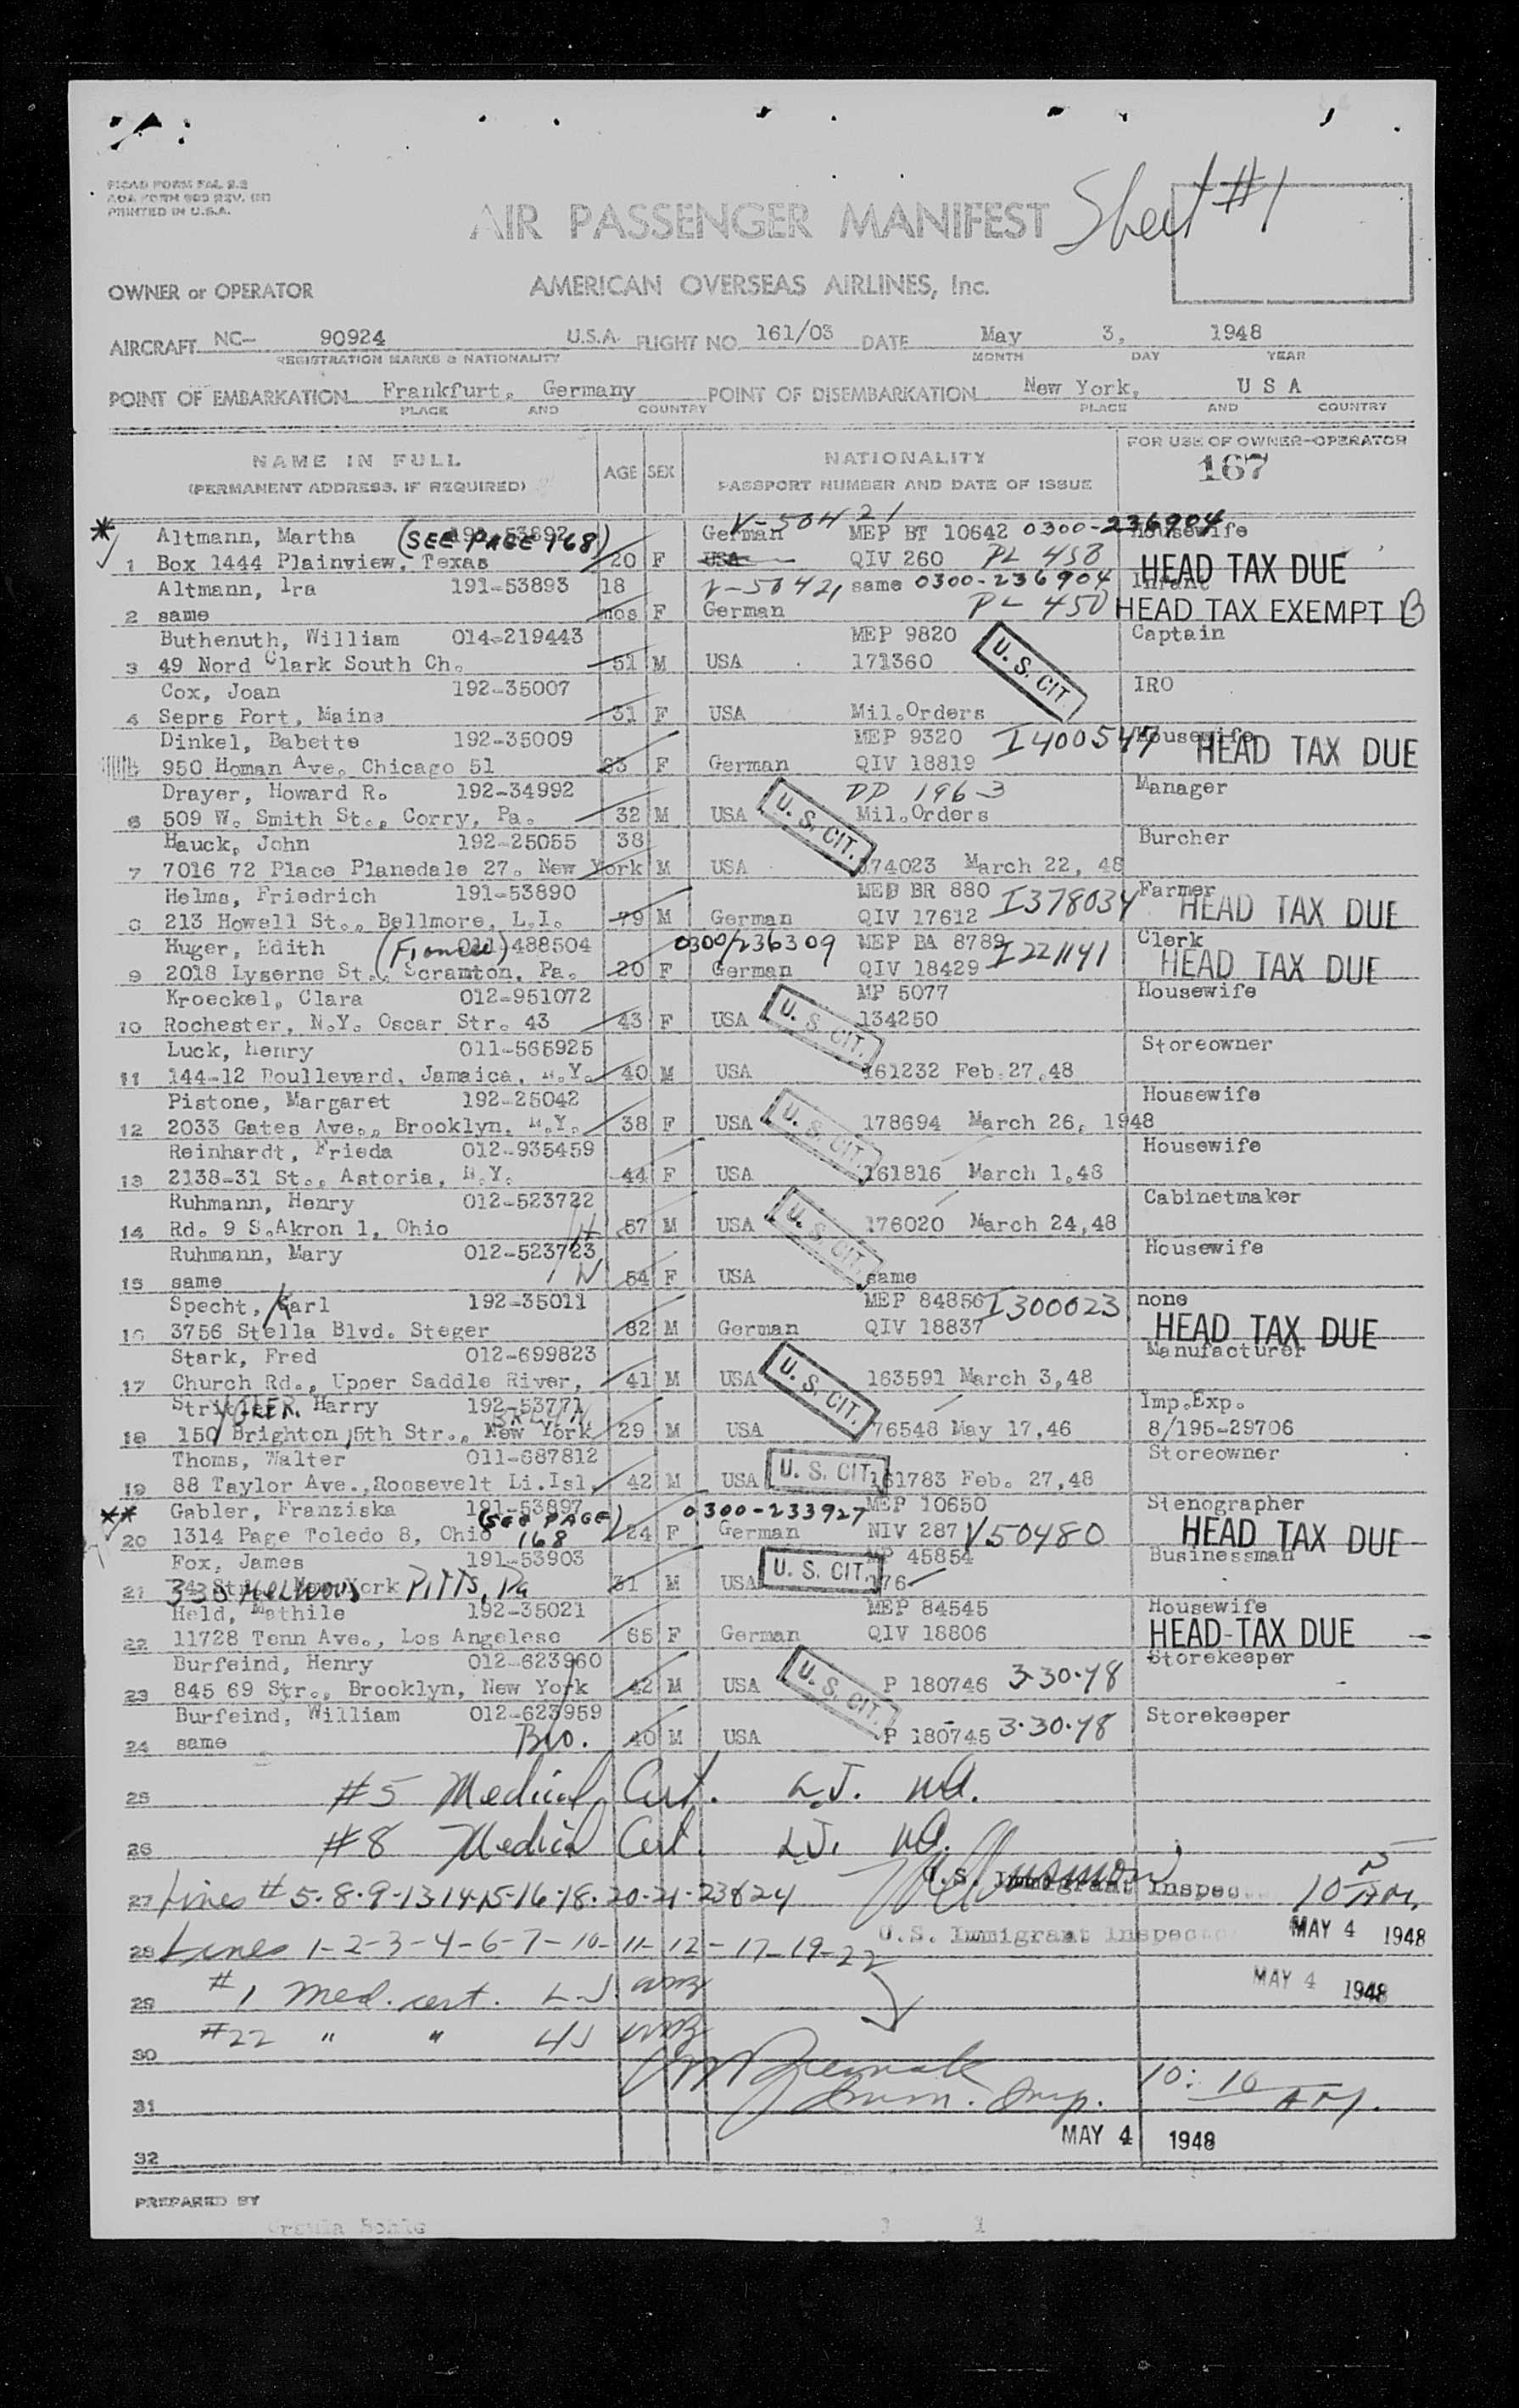 FICAO FORM FAL 2.2
PRINTED IN U.S.A.
AIR PASSENGER MANIFEST Sheet #1
OWNER or OPERATOR AMERICAN OVERSEAS AIRLINES, Inc.
AIRCRAFT NC- 90924 U.S.A. FLIGHT NO. 161/03 DATE May 3, 1948
REGISTRATION MARKS & NATIONALITY MONTH DAY YEAR
POINT OF EMBARKATION Frankfurt, Germany POINT OF DISEMBARKATION New York, U S A
PLACE AND COUNTRY PLACE AND COUNTRY
NAME IN FULL AGE SEX NATIONALITY FOR USE OF OWNER-OPERATOR
(PERMANENT ADDRESS, IF REQUIRED) PASSPORT NUMBER AND DATE OF ISSUE 167
V-50421
* Altmann, Martha 191-53892 (SEE PAGE 168) German MEP BT 10642 0300-236904 Housewife
1 Box 1444 Plainview, Texas 20 F USA QIV 260 PL 450 HEAD TAX DUE
Altmann, Ira 191-53893 18 V-50421 same 0300-236904 Infant
2 same mos F German PL 450 HEAD TAX EXEMPT B
Buthenuth, William 014-219443 MEP 9820 Captain
3 49 Nord Clark South Ch. 51 M USA 171360 U. S. CIT.
Cox, Joan 192-35007 IRO
4 Seprs Port, Maine 31 F USA Mil.Orders
Dinkel, Babette 192-35009 MEP 9320 I400547 Housewife
5 950 Homan Ave. Chicago 51 83 F German QIV 18819 HEAD TAX DUE
Drayer, Howard R. 192-34992 PP 196-3 Manager
6 509 W. Smith St., Corry, Pa. 32 M USA U. S. CIT. Mil.Orders
Hauck, John 192-25055 38 Burcher
7 7016 72 Place Planedale 27. New York M USA 174023 March 22, 48
Helms, Friedrich 191-53890 MEB BR 880 I378034 Farmer
8 213 Howell St., Bellmore, L.I. 79 M German QIV 17612 HEAD TAX DUE
Huger, Edith (Fiancee) 011-488504 0300/236309 MEP BA 8789 I221141 Clerk
9 2018 Lyserne St., Scramton, Pa. 20 F German QIV 18429 HEAD TAX DUE
Kroeckel, Clara 012-951072 MP 5077 Housewife
10 Rochester, N.Y. Oscar Str. 43 43 F USA U. S. CIT. 134250
Luck, Henry 011-565925 Storeowner
11 144-12 Boullevard, Jamaica, N.Y. 40 M USA 161232 Feb.27,48
Pistone, Margaret 192-25042 Housewife
12 2033 Gates Ave., Brooklyn, N.Y. 38 F USA U. S. CIT. 178694 March 26, 1948
Reinhardt, Frieda 012-935459 Housewife
13 2138-31 St., Astoria, N.Y. 44 F USA 161816 March 1,48
Ruhmann, Henry 012-523722 Cabinetmaker
14 Rd. 9 S.Akron 1, Ohio H 57 M USA U. S. CIT. 176020 March 24,48
Ruhmann, Mary 012-523723 Housewife
15 same W 54 F USA same
Specht, Karl 192-35011 MEP 84856 I300023 none
16 3756 Stella Blvd. Steger 82 M German QIV 18837 HEAD TAX DUE
Stark, Fred 012-699823 Manufacturer
17 Church Rd., Upper Saddle River, 41 M USA U. S. CIT. 163591 March 3,48
Harry 192-53771 Imp.Exp.
18 150 Brighton 5th Str., New York BKLYN. 29 M USA 76548 May 17,46 8/195-29706
Thoms, Walter 011-687812 Storeowner
19 88 Taylor Ave.,Roosevelt Li.Isl. 42 M USA U. S. CIT. 161783 Feb. 27,48
** Gabler, Franziska 191-53897 (SEE PAGE 168) 0300-233927 MEP 10650 Stenographer
20 1314 Page Toledo 8, Ohio 24 F German NIV 287 V50480 HEAD TAX DUE
Fox, James 191-53903 MP 45854 Businessman
21 338 PITTS, Pa 31 M USA U. S. CIT. 176
Held, Mathile 192-35021 MEP 84545 Housewife
22 11728 Tenn Ave., Los Angelese 65 F German QIV 18806 HEAD TAX DUE
Burfeind, Henry 012-623960 Storekeeper
23 845 69 Str., Brooklyn, New York 42 M USA U. S. CIT. P 180746 3-30-48
Burfeind, William 012-623959 Storekeeper
24 same Bro. 40 M USA P 180745 3-30-48
25 #5 Medical Cert. L.J. WA.
26 #8 Medical Cert. L.J. WA.
27 Lines # 5-8-9-13-14-15-16-18-20-21-23&24 U.S. Immigrant Inspec 10 AM.
28 Lines 1-2-3-4-6-7-10-11-12-17-19-22 U.S. Immigrant Inspector MAY 4 1948
29 #1 Med. cert. L.J. MAY 4 1948
30 #22 " " LJ
31 Imm. Insp. 10:10 AM.
32 MAY 4 1948
PREPARED BY